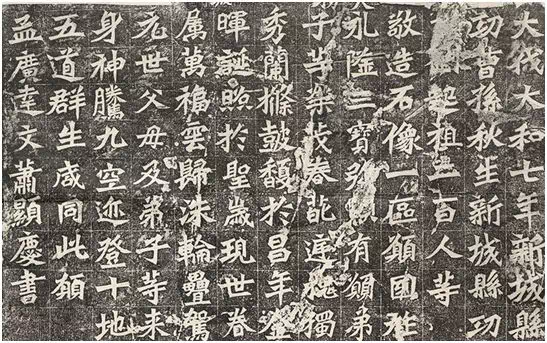 大代大和七年新城縣
功曹孫秋生新城縣功
起祖二百人等
敬造石像一區願國祚
永隆三寶弥顯有願弟
子等榮茂春葩庭槐獨
秀蘭條鼓馥於昌年金
暉誕照於聖歲現世眷
屬萬福雲歸洙輪疊駕
元世父母及弟子等来
身神騰九空迹登十地
五道群生咸同此願
孟廣達文蕭顯慶書